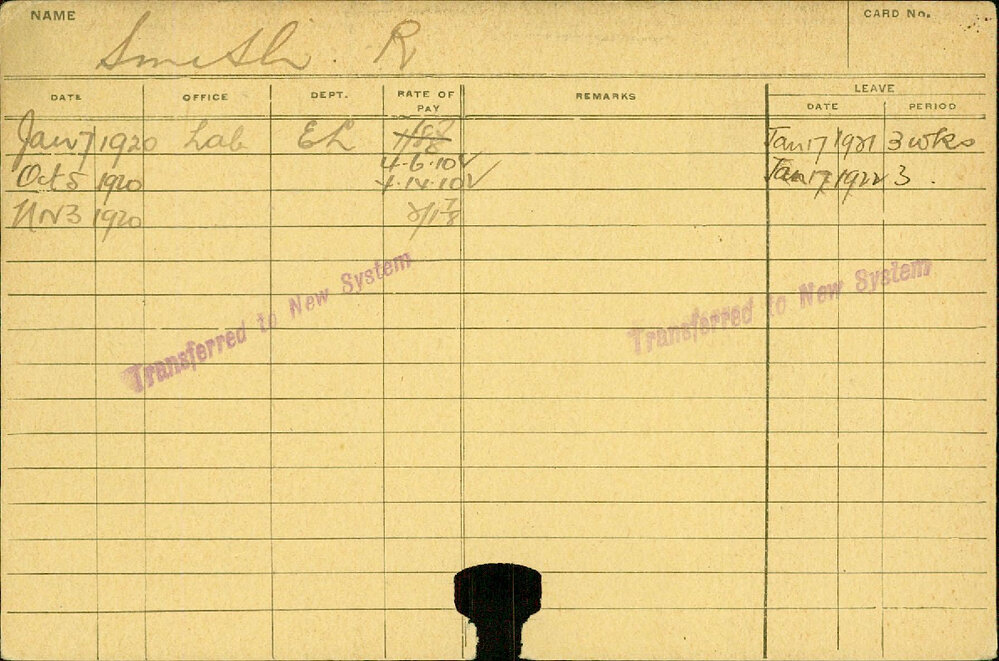 NAME Smith R CARD No.
DATE OFFICE DEPT. RATE OF PAY REMARKS LEAVE
DATE PERIOD
Jan 7 1920 Lab EL Jan 17 1921 3 wks
4.6.10½
Oct 5 1920 4.14.10½ Jan 17 1922 3
Nov 3 1920
Transferred to New System
Transferred to New System